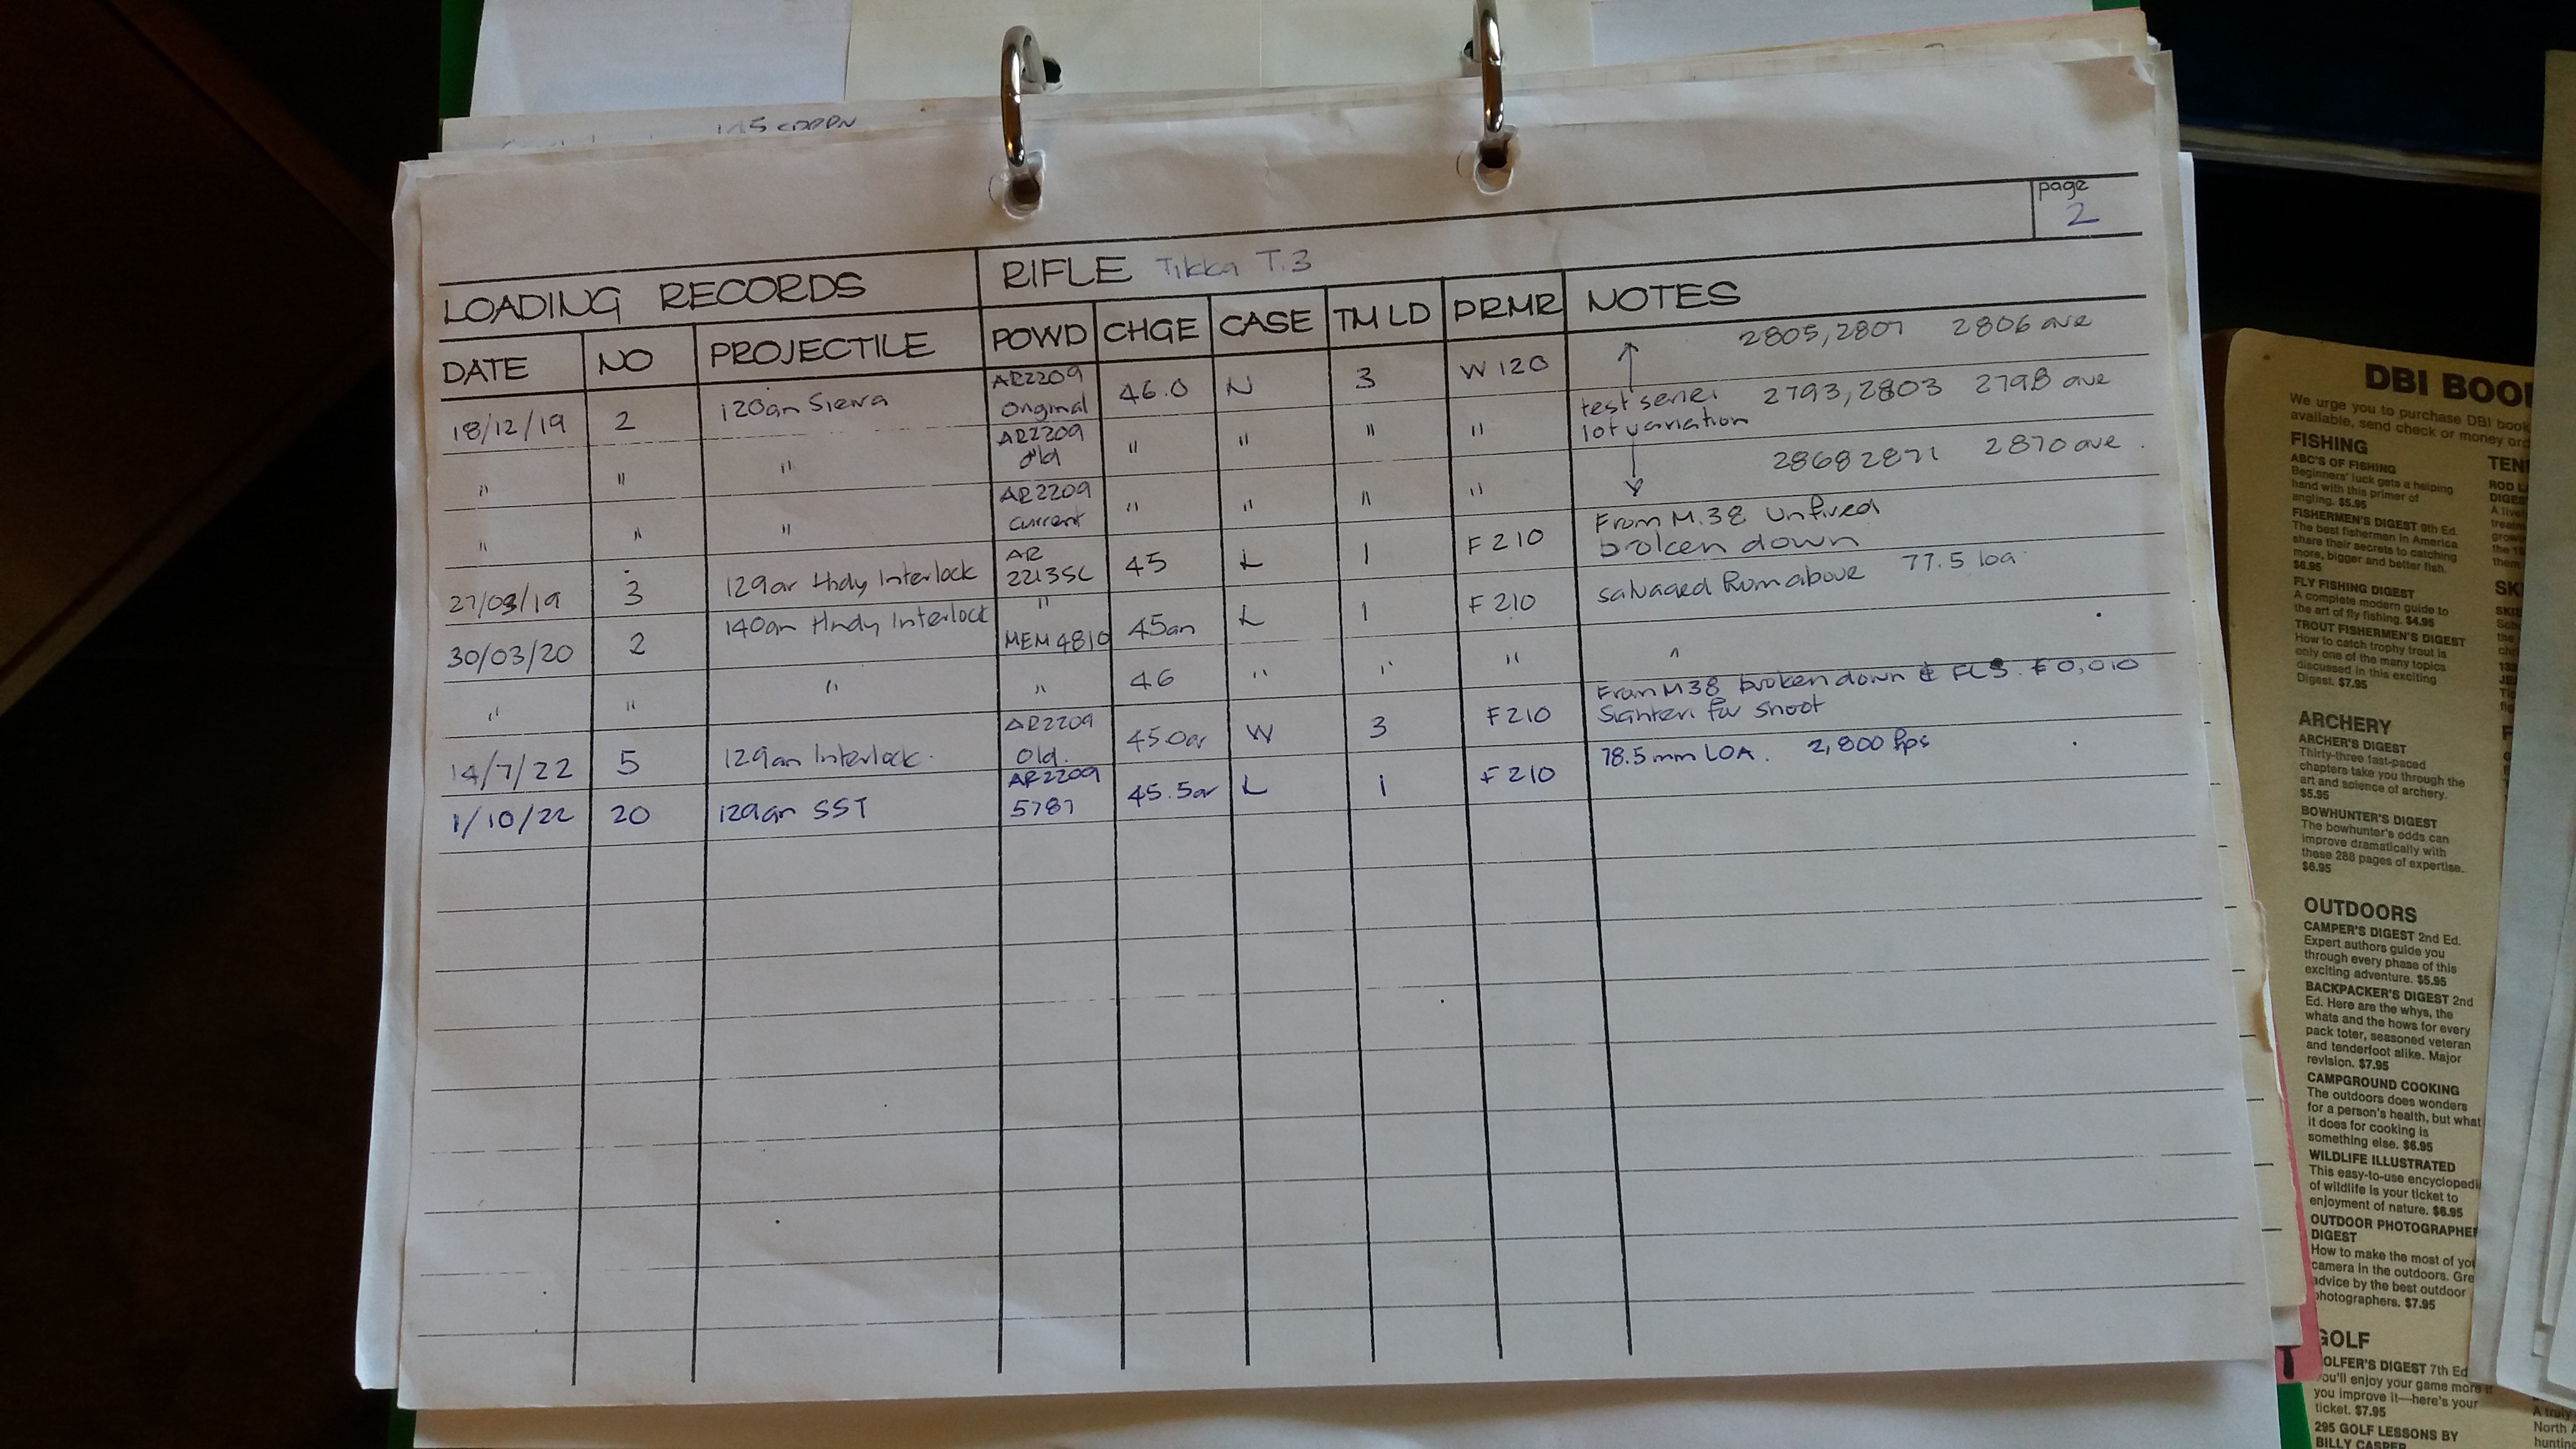 page
2
LOADING RECORDS RIFLE Tikka T.3
DATE NO PROJECTILE POWD CHGE CASE TMLD PRMR NOTES
18/12/19 2 120gn Sierra AR2209 Original 46.0 N 3 W 120 2805, 2807 2806 ave
" " " AR2209 old " " " " test series lot variation 2793, 2803 2798 ave
" " " AR2209 current " " " " 2868 2871 2870 ave.
27/03/19 3 129gr Hndy Interlock AR 2213SC 45 L 1 F 210 From M.38 Unfired broken down
30/03/20 2 140gn Hndy Interlock " MEM 4810 45gn L 1 F 210 salvaged From above 77.5 loa
" " " " 46 " " " "
14/7/22 5 129gn Interlock. AR2209 Old. 45.0gr W 3 F 210 From M38 broken down & FLS. 0,010 Sighters for shoot
1/10/22 20 129gn SST AR2209 5787 45.5gr L 1 F 210 78.5mm LOA. 2,800 fps
DBI BOO
We urge you to purchase DBI book
available, send check or money ord
FISHING
ABC'S OF FISHING
Beginners' luck gets a helping
hand with this primer of
angling. $5.95
FISHERMEN'S DIGEST 9th Ed.
The best fishermen in America
share their secrets to catching
more, bigger and better fish.
$6.95
FLY FISHING DIGEST
A complete modern guide to
the art of fly fishing. $4.95
TROUT FISHERMEN'S DIGEST
How to catch trophy trout is
only one of the many topics
discussed in this exciting
Digest. $7.95
ARCHERY
ARCHER'S DIGEST
Thirty-three fast-paced
chapters take you through the
art and science of archery.
$5.95
BOWHUNTER'S DIGEST
The bowhunter's odds can
improve dramatically with
these 288 pages of expertise.
$6.95
OUTDOORS
CAMPER'S DIGEST 2nd Ed.
Expert authors guide you
through every phase of this
exciting adventure. $5.95
BACKPACKER'S DIGEST 2nd
Ed. Here are the whys, the
whats and the hows for every
pack toter, seasoned veteran
and tenderfoot alike. Major
revision. $7.95
CAMPGROUND COOKING
The outdoors does wonders
for a person's health, but what
it does for cooking is
something else. $6.95
WILDLIFE ILLUSTRATED
This easy-to-use encyclopedi
of wildlife is your ticket to
enjoyment of nature. $6.95
OUTDOOR PHOTOGRAPHER
DIGEST
How to make the most of you
camera in the outdoors. Gre
advice by the best outdoor
photographers. $7.95
GOLF
GOLFER'S DIGEST 7th Ed
You'll enjoy your game more if
you improve it—here's your
ticket. $7.95
295 GOLF LESSONS BY
BILLY CASPER